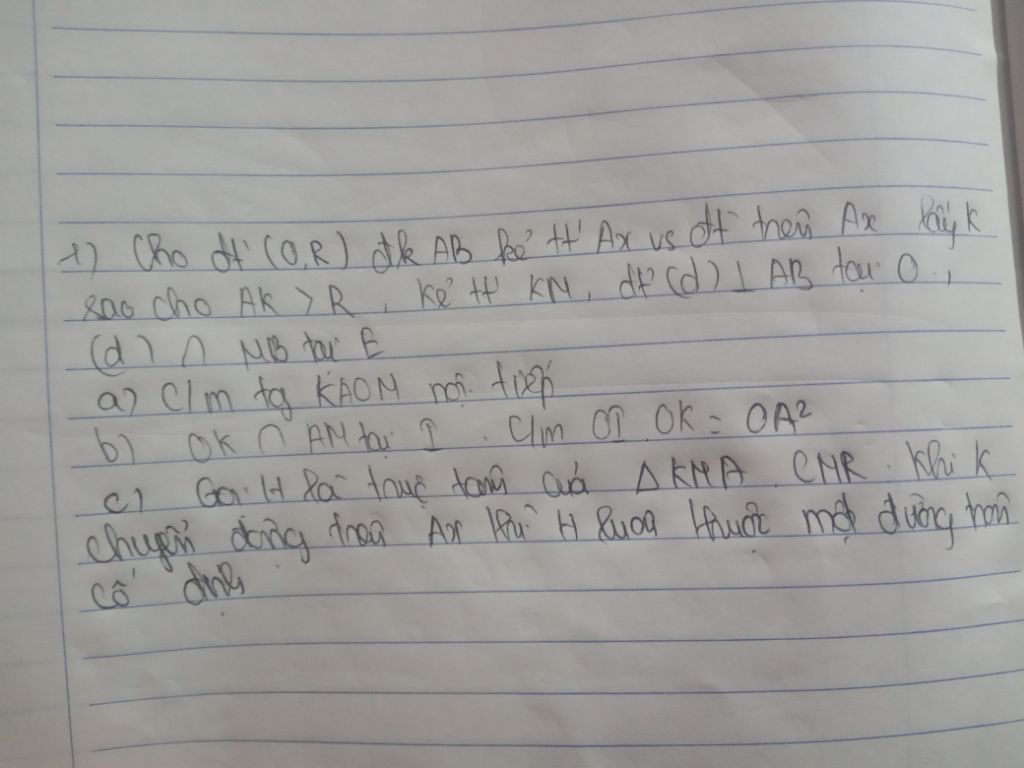 1) Cho đt (O,R) đk AB kẻ tt Ax vs đt trên Ax lấy K
sao cho AK > R, kẻ tt KM, đt (d) ⊥ AB tại O,
(d) ∩ MB tại E
a) C/m tg KAOM nội tiếp
b) OK ∩ AM tại I. C/m OI OK = OA²
c) Gọi H là trực tâm của ΔKMA. CMR khi K
chuyển động trên Ax thì H luôn thuộc một đường tròn
cố định